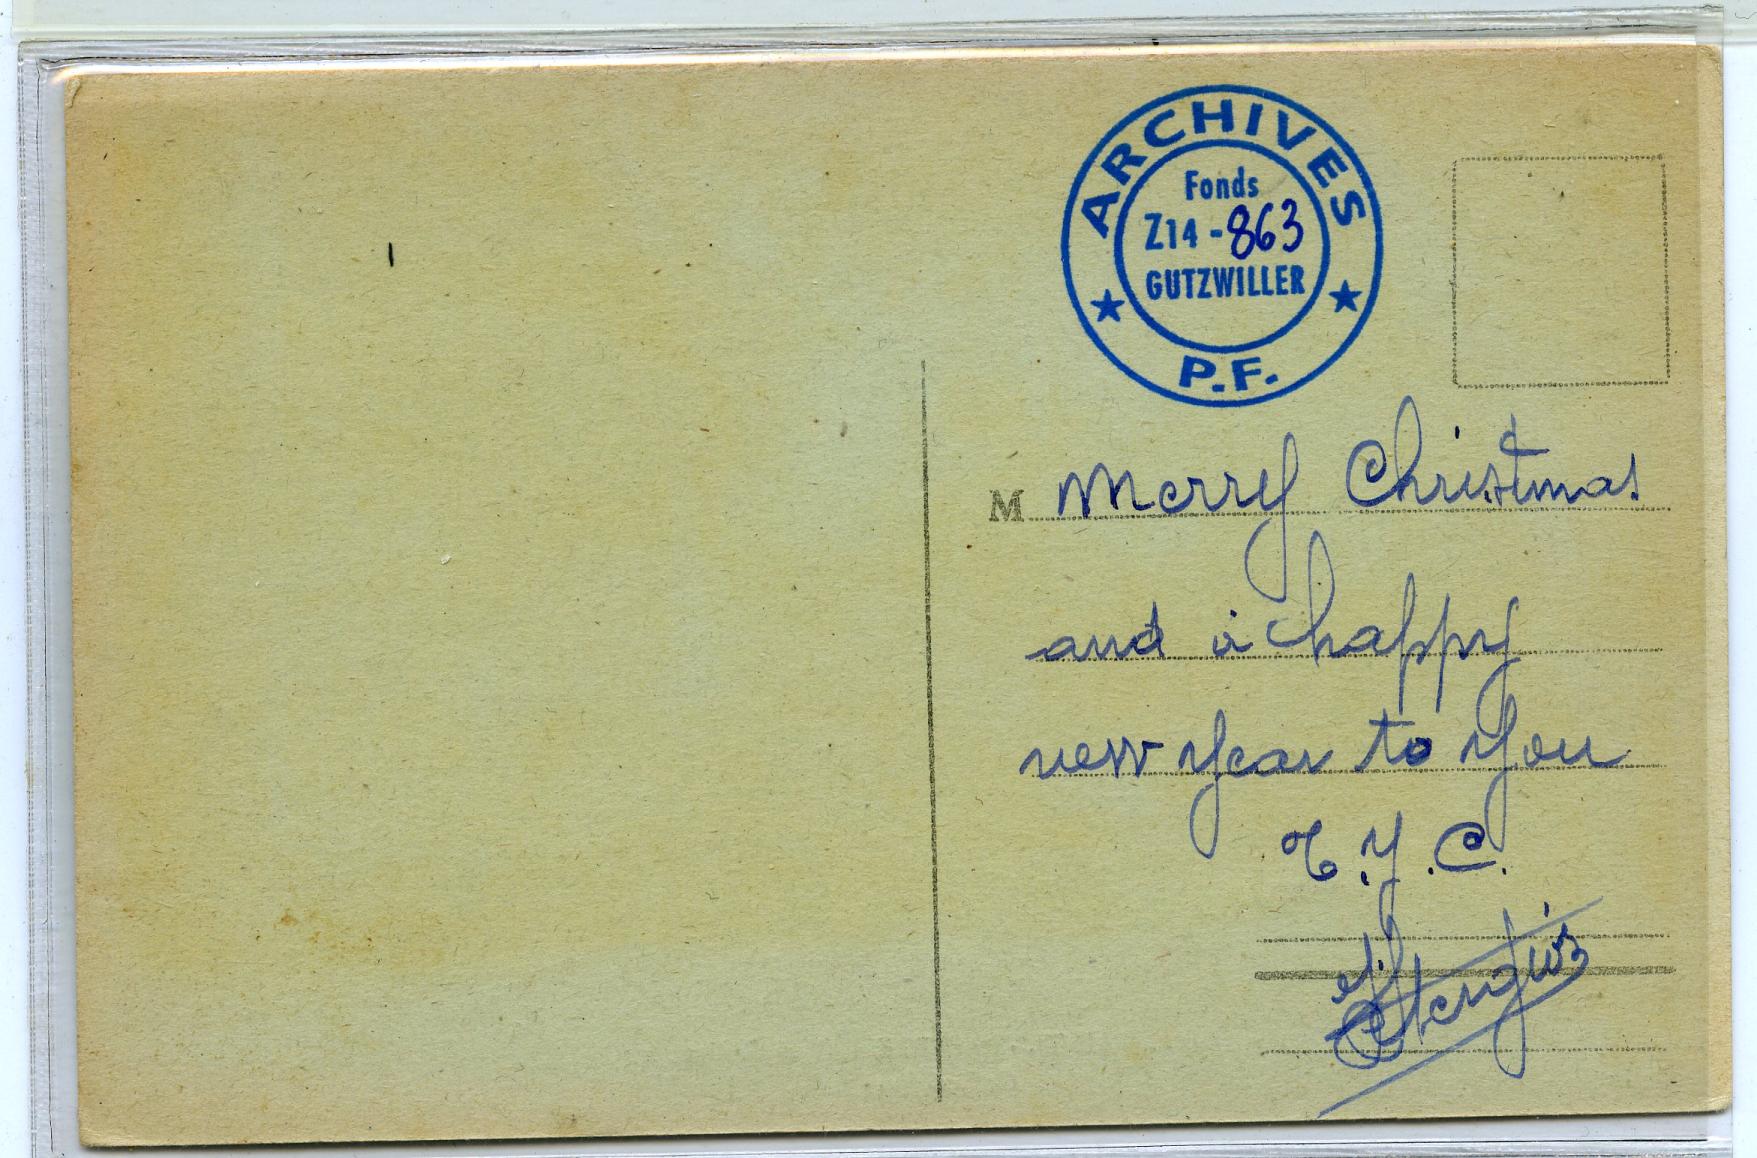 ARCHIVES
Fonds
Z14 - 863
GUTZWILLER
P.F.
M
Merry Christmas
and a happy
new year to you